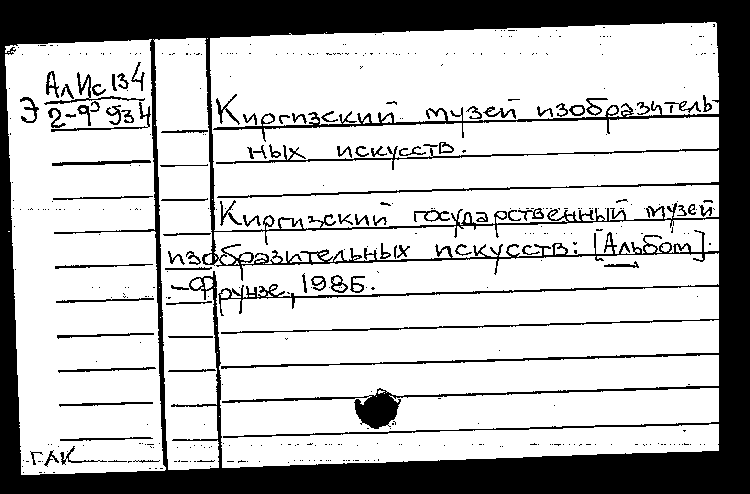 АлИс 134
Э 2-9° 934
Киргизский музей изобразитель-
ных искусств.
Киргизский государственный музей
изобразительных искусств: [Альбом].
-Фрунзе, 1985.
ГАК